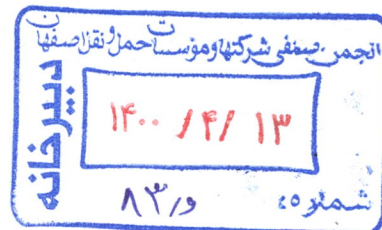 انجمن صنفی شرکتها و مؤسسات حمل و نقل اصفهان
دبیرخانه
۱۴۰۰ / ۴ / ۱۳
شماره:
۸۳/و